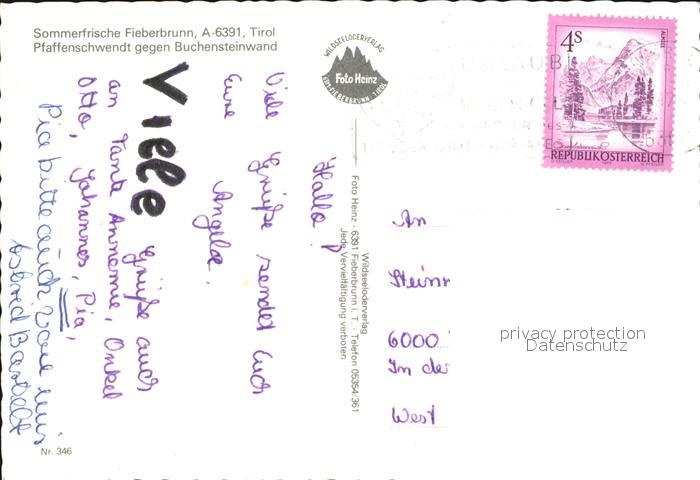 Sommerfrische Fieberbrunn, A-6391, Tirol
Pfaffenschwendt gegen Buchensteinwand
WILDSEELODERVERLAG
Foto Heinz
FIEBERBRUNN - TIROL
4S
ALMSEE
REPUBLIK ÖSTERREICH
URLAUB
Hallo!
Viele Grüße sendet Euch
Eure Angela.
Viele Grüße auch
an Tante Annemie, Onkel
Otto, Johannes, Pia,
Pia bitte auch von mir
Astrid
Wildseeloderverlag
Foto Heinz - 6391 Fieberbrunn i. T. - Telefon 05354/361
Jede Vervielfältigung verboten
An
Steinr
6000
In der
West
privacy protection
Datenschutz
Nr. 346